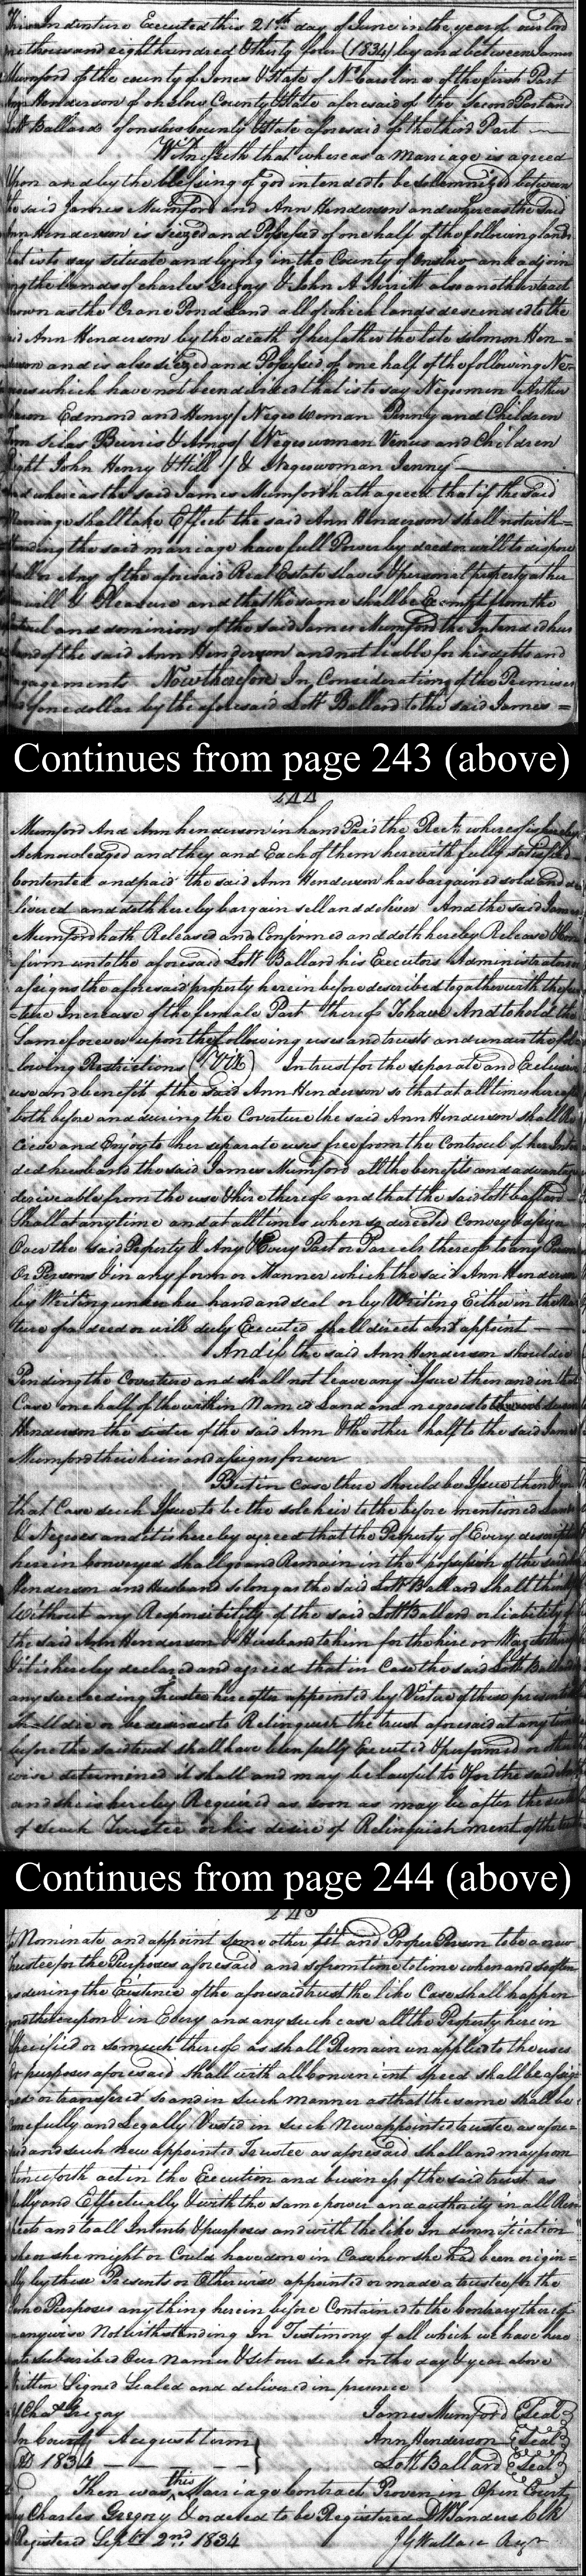 This Indenture Executed this 21st day of June in the year of our lord
one thousand eight hundred & thirty four (1834) by and between James
Mumford of the county of Jones & State of N. Carolina of the first Part
Ann Henderson of onslow County & State aforesaid of the Second Part and
Lott Ballard of onslow County & State aforesaid of the third Part
Witnesseth that whereas a Marriage is agreed
Upon and by the blessing of god intended to be solemnized between
the said James Mumford and Ann Henderson and whereas the said
Ann Henderson is Seized and Possessed of one half of the following lands
that is to say situate and lying in the County of Onslow and adjoin
ing the lands of Charles Gregory & John A. Averitt also another tract
known as the Crane Pond Land all of which lands descended to the
said Ann Henderson by the death of her father the late Solomon Hen=
derson and is also Siezed and Possessed of one half of the following Ne-
groes which have not been divided that is to say Negro men Arthur
Edmond and Henry / Negro woman Penny and Children
Silas Burris & Amos / Negro woman Venus and Children
Right John Henry & Hill / & Negro woman Jenny
And whereas the said James Mumford hath agreed that if the said
Marriage shall take Effect the said Ann Henderson shall notwith=
standing the said marriage have full Power by deed or will to dispose
all or Any of the aforesaid Real Estate slaves & personal property at her
will & Pleasure and that the same shall be Exempt from the
control and dominion of the said James Mumford the Intended hus
band of the said Ann Henderson and not liable for his debts and
engagements Now therefore In Consideration of the Premises
and of one dollar by the aforesaid Lott Ballard to the said James =
Continues from page 243 (above)
244
Mumford And Ann henderson in hand Paid the Rect. whereof is hereby
Acknowledged and they and Each of them herewith fully satisfied
contented and paid the said Ann Henderson has bargained sold and de
livered and doth hereby bargain sell and deliver And the said James
Mumford hath Released and Confirmed and doth hereby Release & Con
firm unto the aforesaid Lott Ballard his Executors Administrators
assigns the aforesaid property herein before described together with the fu
ture Increase of the female Part thereof To have And to hold the
Same forever upon the following uses and trusts and under the fol
lowing Restrictions (Viz) In trust for the separate and Exclusive
use and benefit of the said Ann Henderson so that at all times hereafter
both before and during the Coverture the said Ann Henderson shall Re
cieve and Enjoy to her separate uses free from the Controul of her Inten
ded husband the said James Mumford all the benefits and advantages
deriveable from the use & hire thereof and that the said Lott Ballard
Shall at any time and at all times when so directed Convey & assign
Over the said Property & Any & Every Part or Parcels thereof to any Person
Or Persons & in any form or Manner which the said Ann Henderson
by Writing under her hand and seal or by Writing Either in the Na
ture of a deed or will duly Executed shall direct and appoint
And if the said Ann Henderson should die
Pending the Coverture and shall not leave any Issue then and in that
Case one half of the within Named Land and negroes to
Henderson the sister of the said Ann & the other half to the said James
Mumford their heirs and assigns forever
But in case there should be Issue then in
that Case such Issue to be the sole heir to the before mentioned Land
& Negroes and it is hereby agreed that the Property of Every description
herein Conveyed shall go and Remain in the possession of the said
Henderson and Husband so long as the said Lott Ballard shall think
Without any Responsibility of the said Lott Ballard or liability of
the said Ann Henderson & Husband to him for the hire or
& it is hereby declared and agreed that in Case the said Lott Ballard
any succeeding Trustee hereafter appointed by Virtue of these presents
shall die or be desirous to Relinquish the trust aforesaid at any time
before the said trust shall have been fully Executed & performed or other
wise determined it shall and may be lawful to & for the said
and she is hereby Required as soon as may be after the
of such Trustee or his desire of Relinquishment of the trust
Continues from page 244 (above)
245
to Nominate and appoint some other fit and Proper Person to be a new
trustee for the Purposes aforesaid and so from time to time when and so often
as during the Existence of the aforesaid trust the like Case shall happen
and thereupon & in Every and any such case all the Property herein
Specified or so much thereof as shall Remain unapplied to the uses
or purposes aforesaid shall with all convenient speed shall be assign
ed or transfired so and in such manner as that the same shall be
fully and Legally Vested in such New appointed trustee as afore=
said and such New appointed Trustee as aforesaid shall and may from
thenceforth act in the Execution and business of the said trust as
fully and Effectually & with the same power and authority in all Res
pects and to all Intents & purposes and with the like Indemnification
as he or she might or Could have done in Case he or she had been origin=
ally by these Presents or Otherwise appointed or made a trustee for the
same Purposes any thing herein before Contained to the Contrary thereof
in anywise Notwithstanding In Testimony of all which we have here
unto subscribed Our Names & Set our seals on the day & year above
Written Signed Sealed and delivered in presence
of Chas Gregory James Mumford Seal
In County August term Ann Henderson Seal
AD 1834 Lott Ballard Seal
Then was this Marriage Contract Proven in Open Court
by Charles Gregory & ordered to be Registered D W Sanders Clk
Registered Sept 2nd 1834 J G Wallace Regr